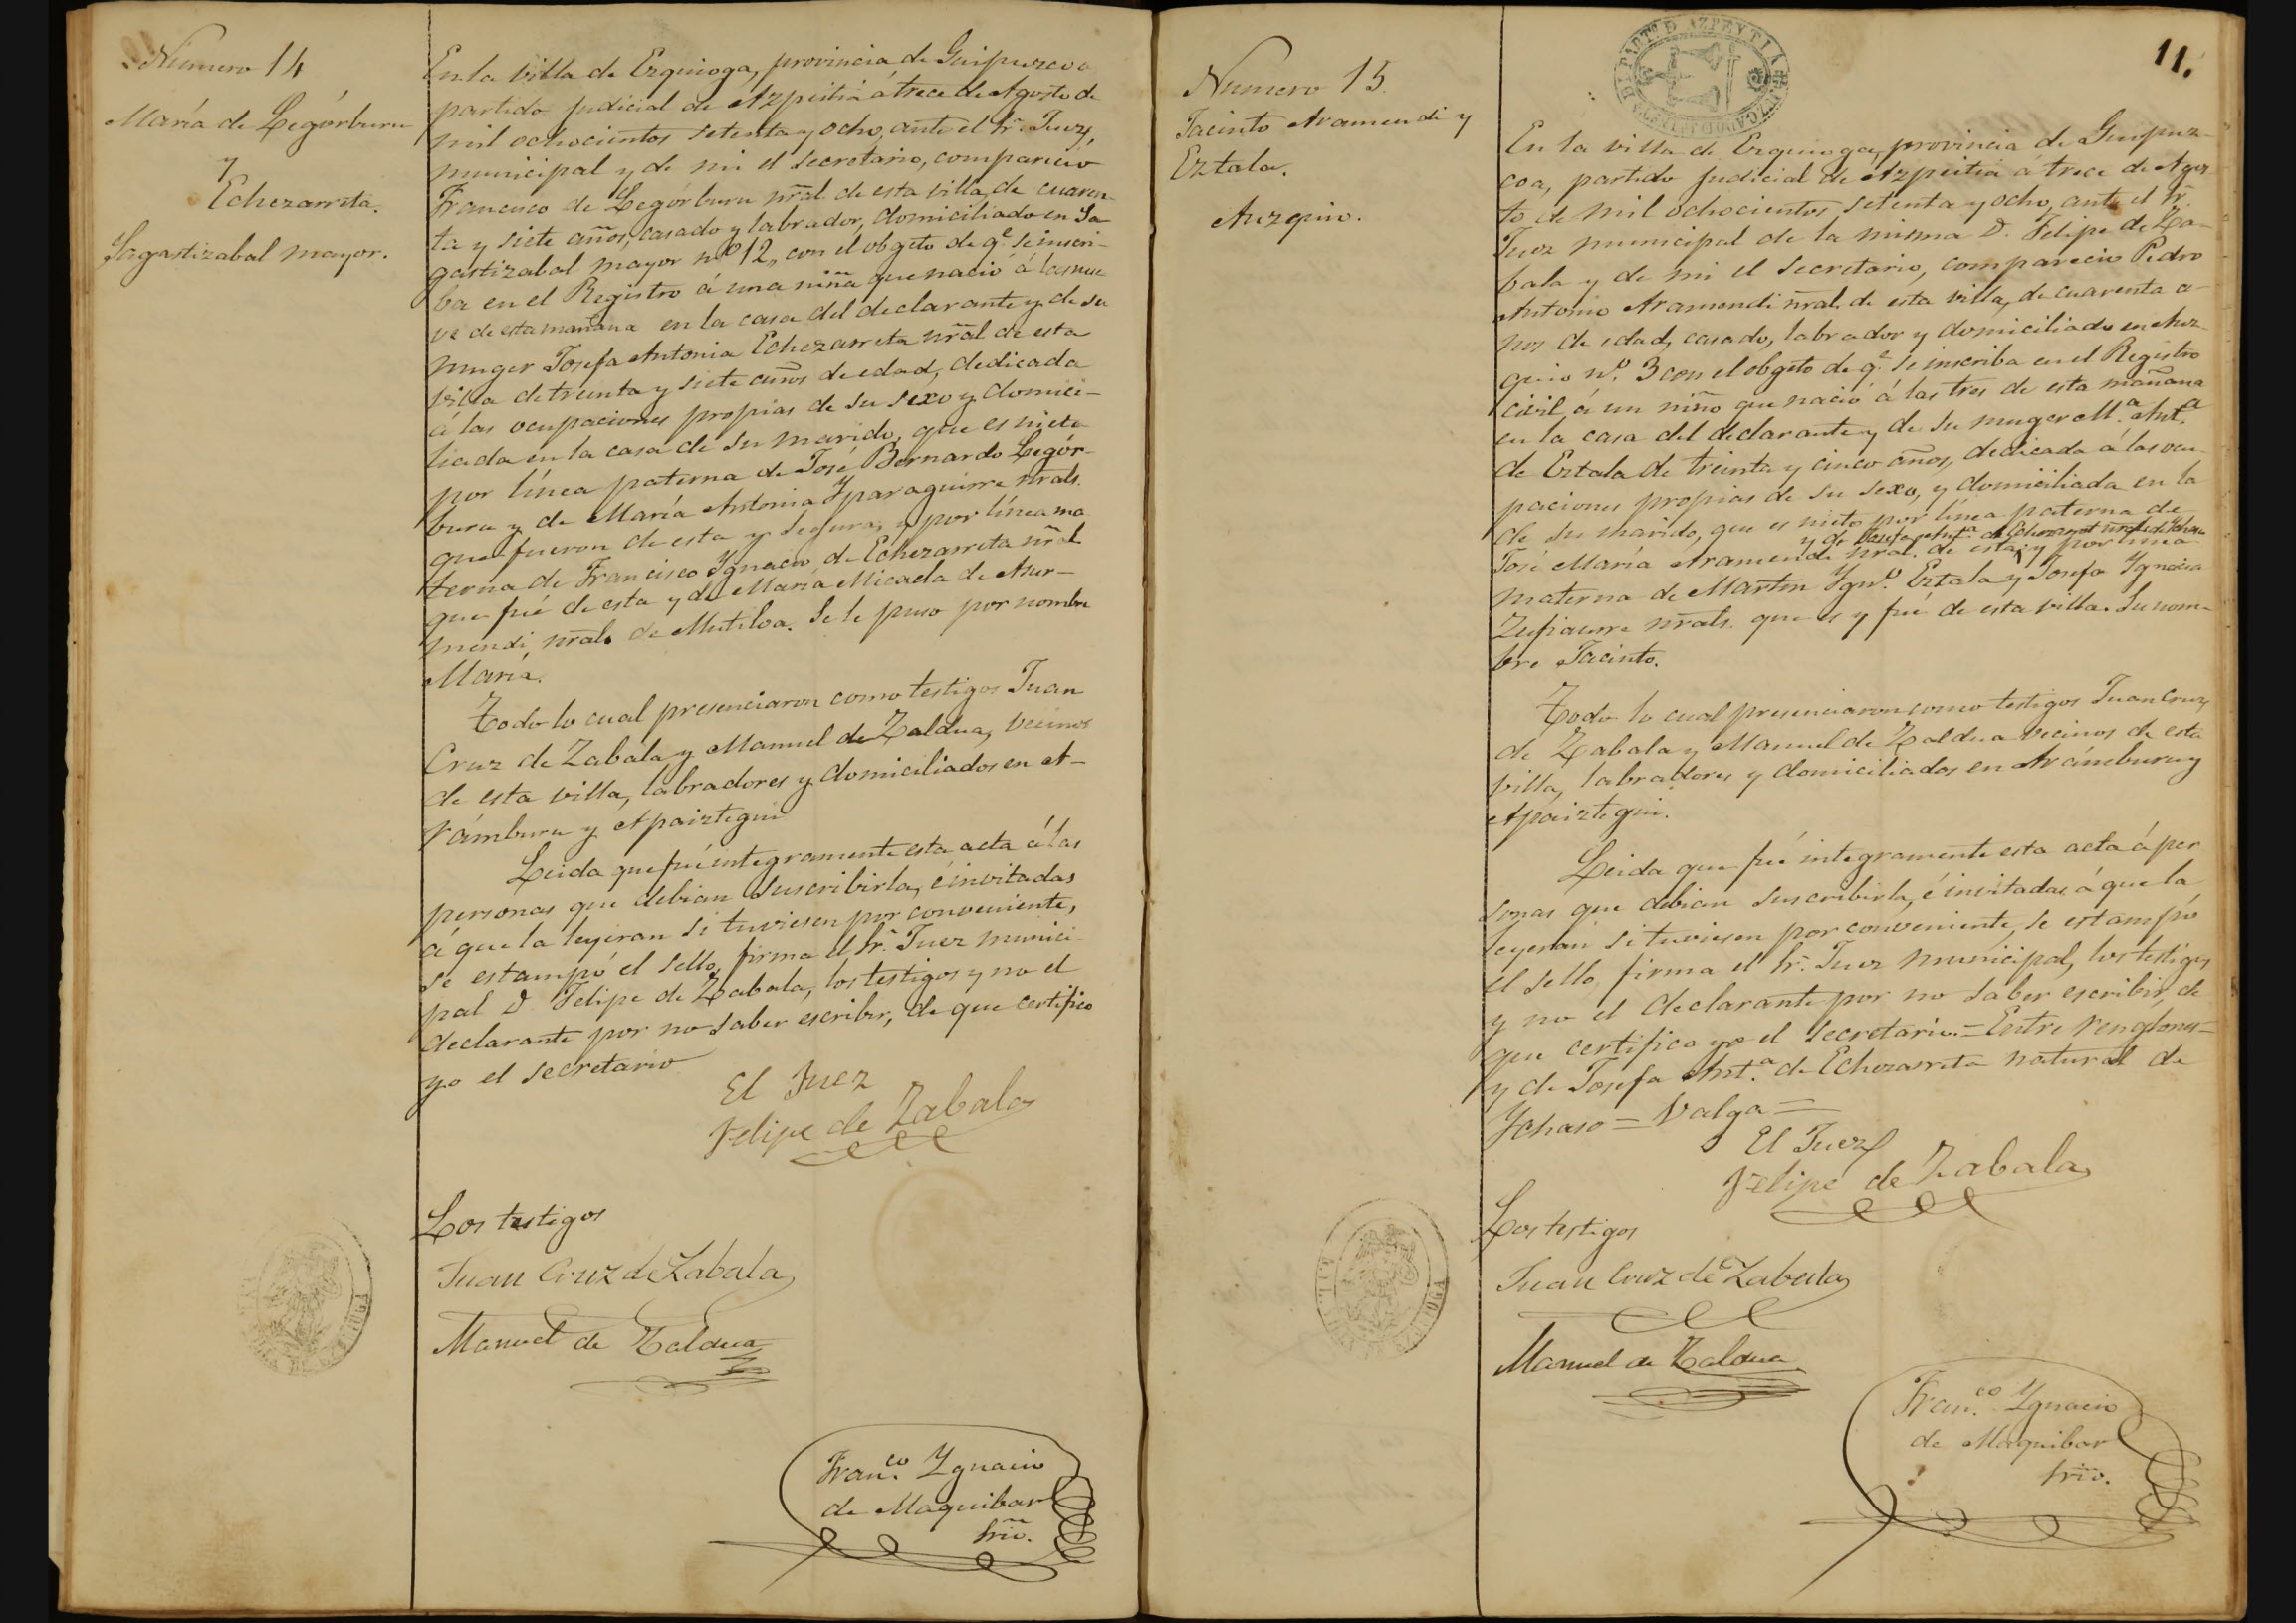 Número 14
María de Legórburu
y
Echezarreta.
Sagastizabal mayor.
En la villa de Ezquioga, provincia de Guipuzcoa
partido judicial de Azpeitia á trece de Agosto de
mil ochocientos setenta y ocho, ante el Sr. Juez
municipal y de mi el secretario, compareció
Francisco de Legórburu nral. de esta villa, de cuaren-
ta y siete años, casado y labrador, domiciliado en Sa-
gastizabal mayor nº 12, con el obgeto de q.e se inscri-
ba en el Registro á una niña que nació á las nue
ve de esta mañana en la casa del declarante y de su
muger Josefa Antonia Echezarreta nral de esta
villa de treinta y siete años de edad, dedicada
á las ocupaciones propias de su sexo y domici-
liada en la casa de su marido, que es nieta
por línea paterna de José Bernardo Legór-
buru y de María Antonia Yparaguirre nrals.
que fueron de esta y Segura, y por línea ma
terna de Francisco Ygnacio de Echezarreta nral
que fué de esta y de María Micaela de Aur-
mendi, nral. de Mutiloa. Se le puso por nombre
María.
Todo lo cual presenciaron como testigos Juan
Cruz de Zabala y Manuel de Zaldua, vecinos
de esta villa, labradores y domiciliados en A-
rámburu y Apaiztegui
Leida que fué integramente esta acta á las
personas que debian suscribirla, é invitadas
á que la leyeran si tuviesen por conveniente,
se estampó el sello, firma el Sr. Juez munici-
pal D. Felipe de Zabala, los testigos y no el
declarante por no saber escribir, de que certifico
yo el secretario
El Juez
Felipe de Zabala
Los testigos
Juan Cruz de Zabala
Manuel de Zaldua
Fran.co Ygnacio
de Maquibar
Srio.
11.
Numero 15.
Jacinto Aramendi y
Eztala.
Auzquio.
En la villa de Ezquioga, provincia de Guipuz-
coa, partido judicial de Azpeitia á trece de Agos-
to de mil ochocientos setenta y ocho, ante el Sr.
Juez municipal de la misma D. Felipe de Za-
bala y de mi el secretario, compareció Pedro
Antonio Aramendi nral. de esta villa, de cuarenta a-
ños de edad, casado, labrador y domiciliado en Auz-
quio nº. 3 con el obgeto de q.e se inscriba en el Registro
civil, á un niño que nació á las tres de esta mañana
en la casa del declarante y de su muger M.a Ant.a
de Eztala de treinta y cinco años, dedicada á las ocu-
paciones propias de su sexo, y domiciliada en la
de su marido, que es nieto por línea paterna de
y de Josefa Ant.a de Echezarreta nral de Ychaso
José María Aramendi nral. de esta, y por línea
materna de Martin Ygn.o Eztala y Josefa Ygnacia
Zufiaurre nrals. que es y fué de esta villa. Su nom-
bre Jacinto.
Todo lo cual presenciaron como testigos Juan Cruz
de Zabala y Manuel de Zaldua vecinos de esta
villa, labradores y domiciliados en Arámburu y
Apaiztegui.
Leida que fué integramente esta acta á per
sonas que debian suscribirla, é invitadas á que la
leyeran si tuviesen por conveniente, se estampó
el sello, firma el Sr. Juez municipal, los testigos
y no el declarante por no saber escribir, de
que certifico yo el secretario.=Entre renglones=
y de Josefa Ant.a de Echezarreta natural de
Ychaso=Valga=
El Juez
Felipe de Zabala
Los testigos
Juan Cruz de Zabala
Manuel de Zaldua
Fran.co Ygnacio
de Maquibar
Srio.